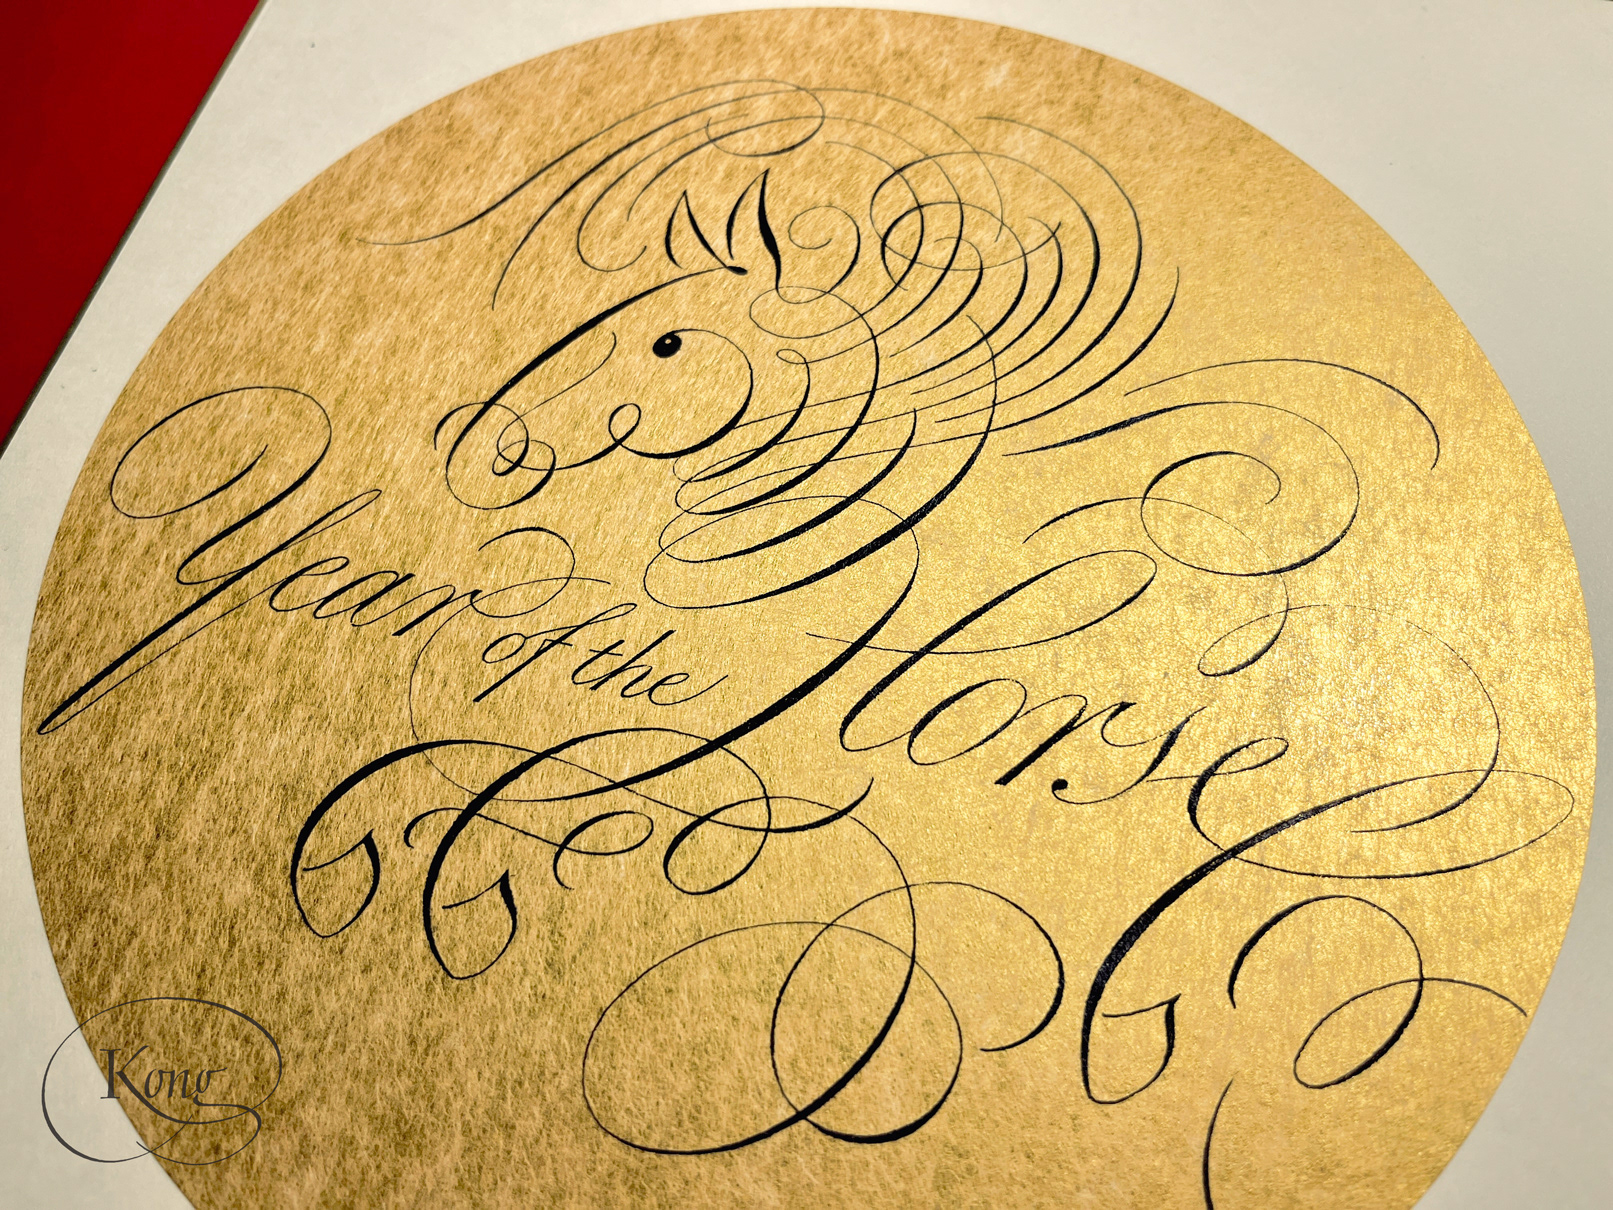 Year
of the
Horse
Kong